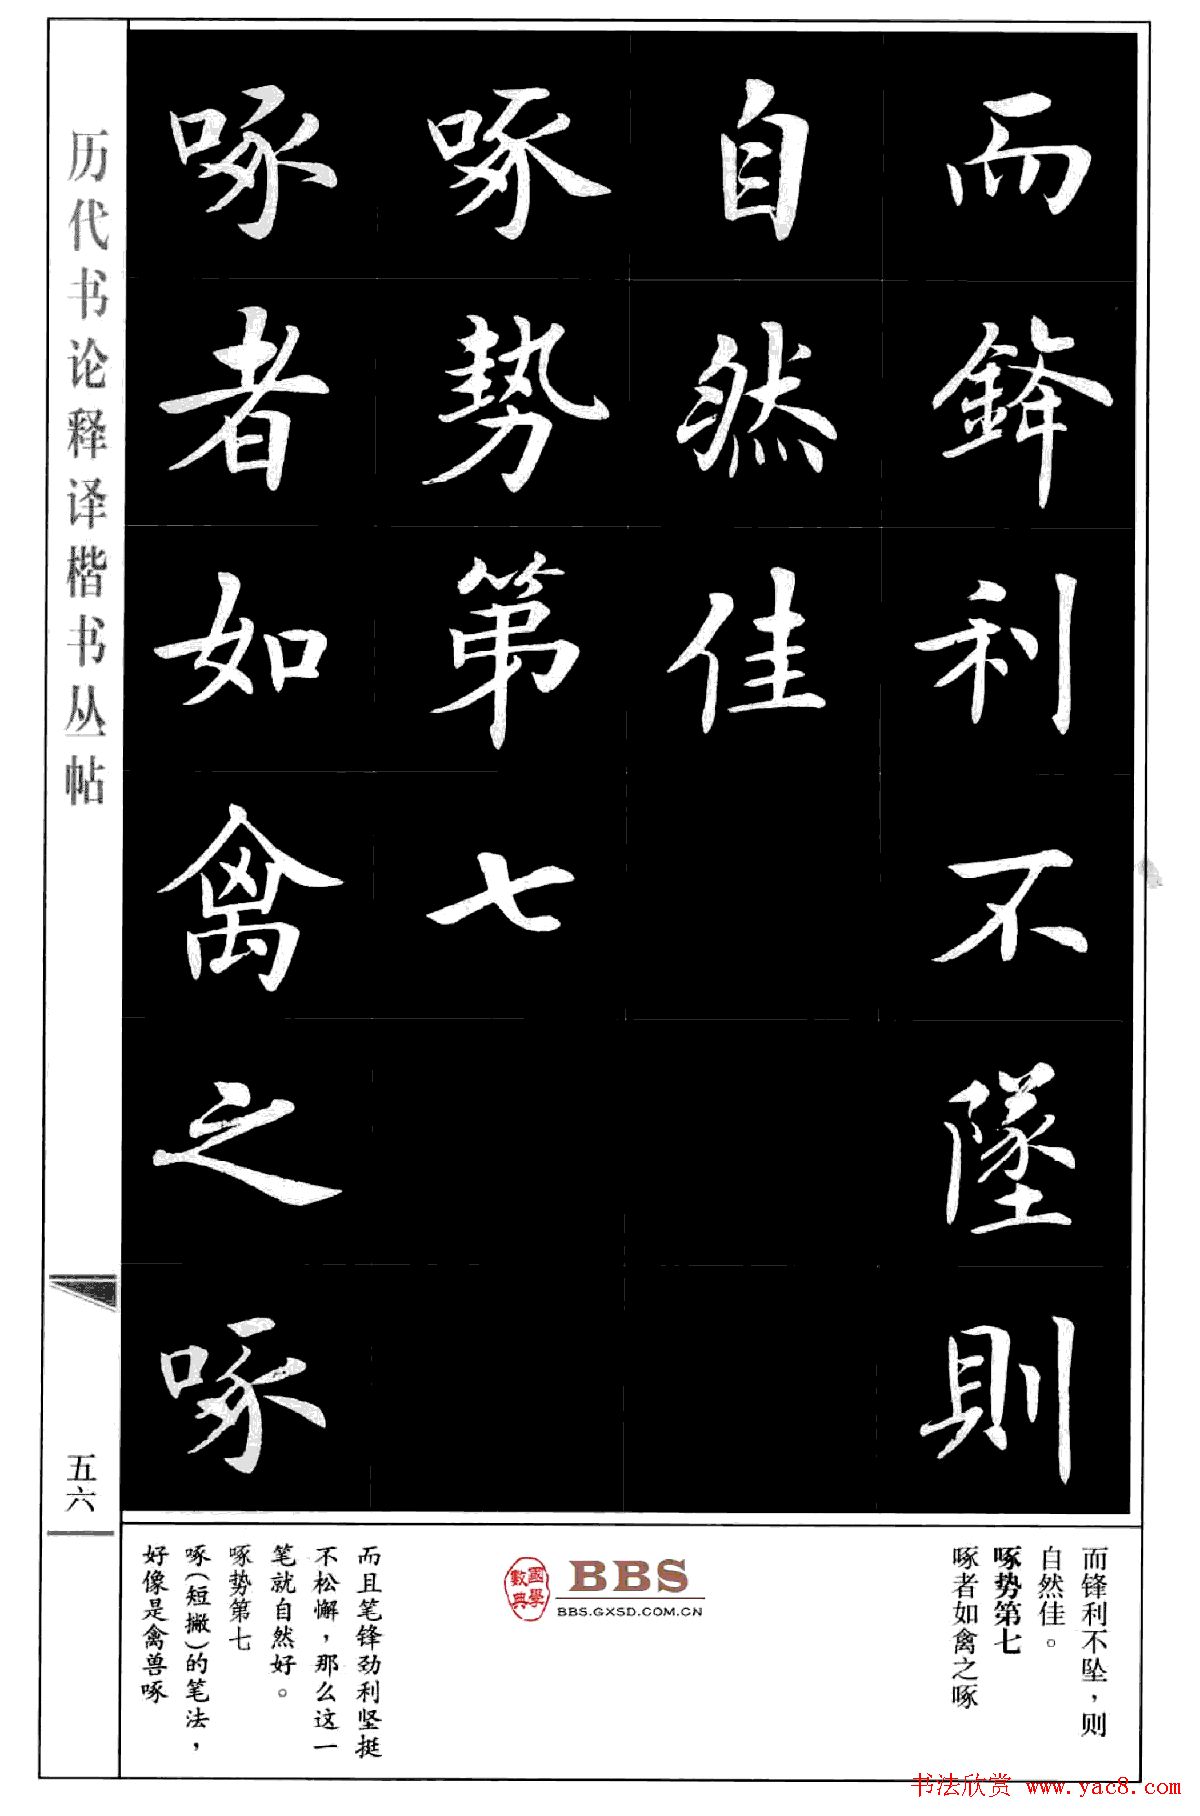 而鋒利不墜則
自然佳
啄勢第七
啄者如禽之啄
历代书论释译楷书丛帖
五六
而锋利不坠，则
自然佳。
啄势第七
啄者如禽之啄
國學數典
BBS
BBS.GXSD.COM.CN
而且笔锋劲利坚挺
不松懈，那么这一
笔就自然好。
啄势第七
啄(短撇)的笔法，
好像是禽兽啄
书法欣赏 www.yac8.com